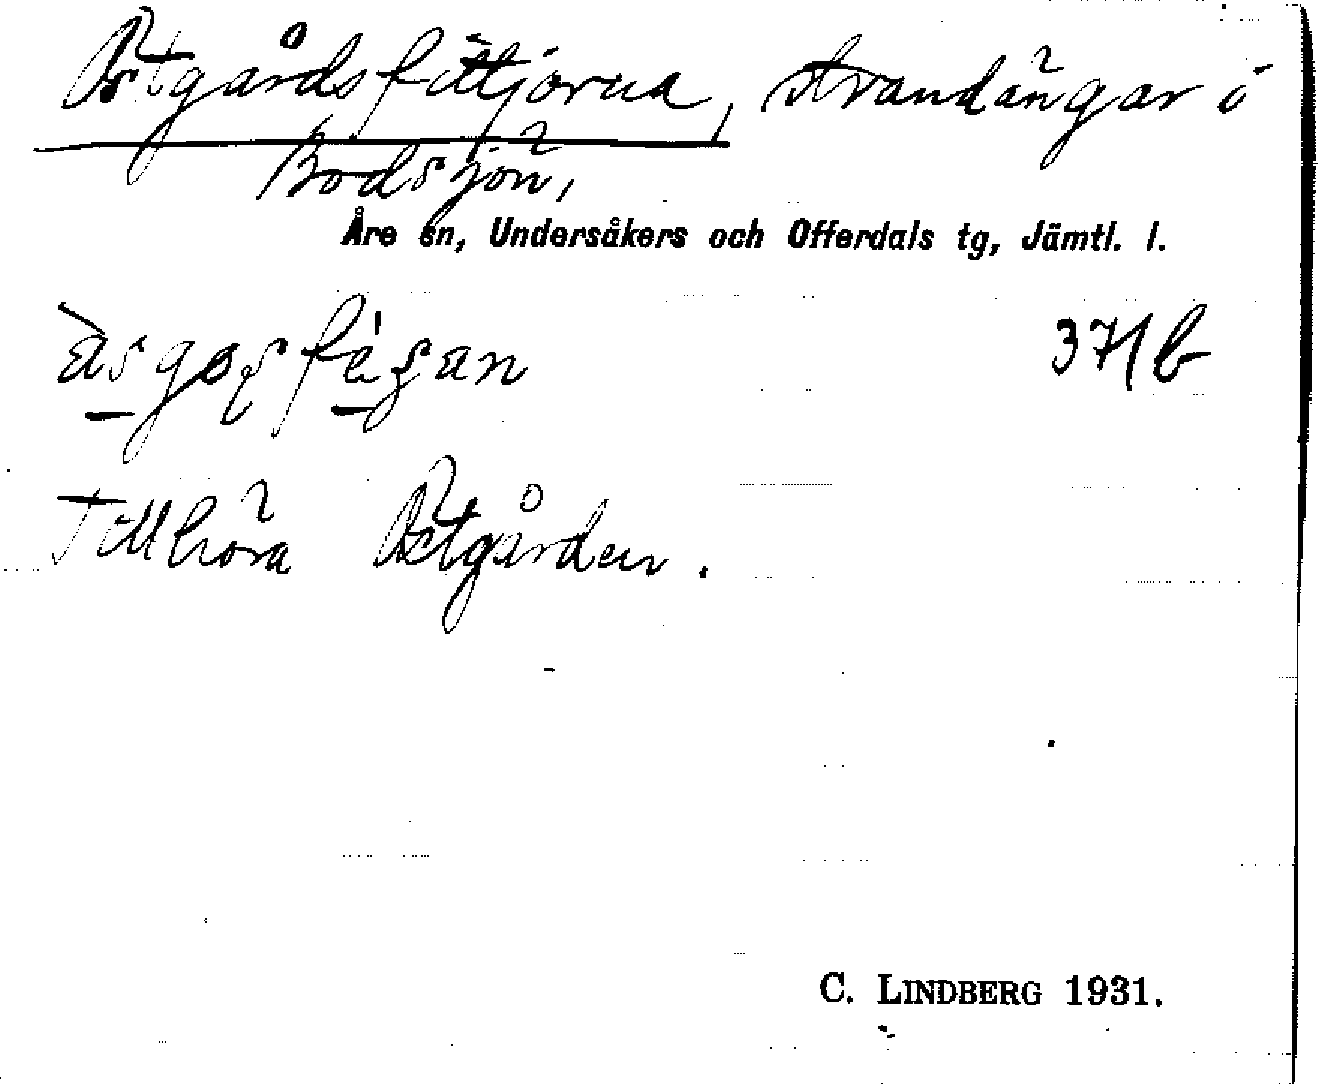 Östgårdsfittjorna, strandängar i
Bodsjön,
Åre sn, Undersåkers och Offerdals tg, Jämtl. l.
371b
Tillhöra Östgården.
C. LINDBERG 1931.